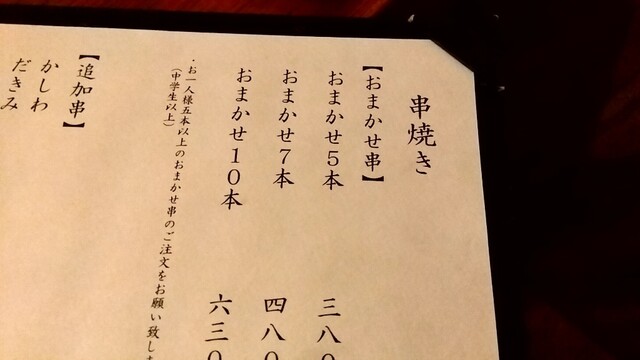 串焼き
【おまかせ串】
おまかせ5本 三八〇
おまかせ7本 四八〇
おまかせ10本 六三〇
・お一人様五本以上のおまかせ串のご注文をお願い致しま
(中学生以上)
【追加串】
かしわ
だきみ